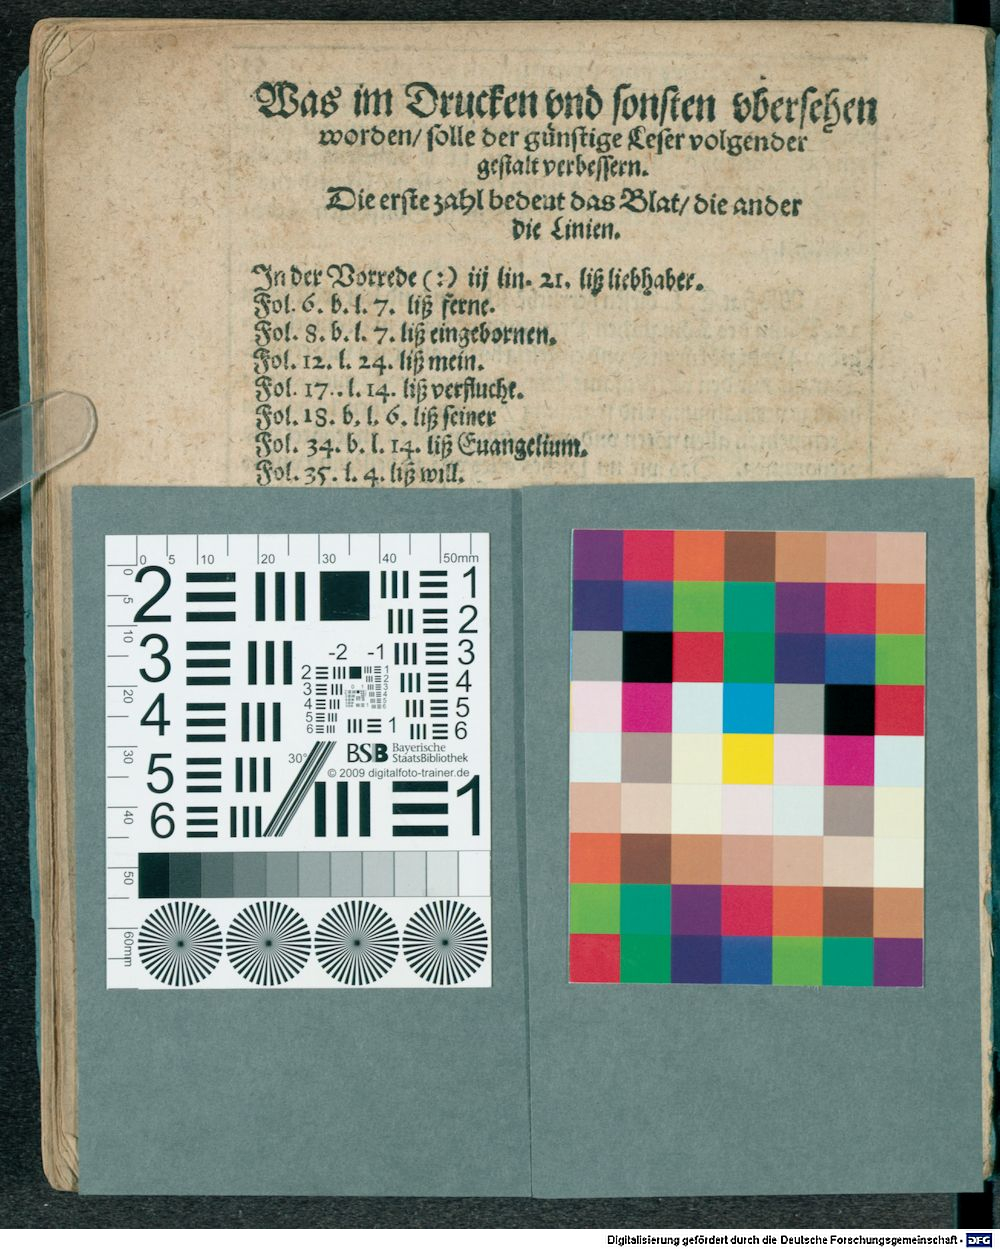 Was im Drucken vnd sonsten vbersehen
worden/ solle der günstige Leser volgender
gestalt verbessern.
Die erste zahl bedeut das Blat/ die ander
die Linien.
In der Vorrede (:) iij lin. 21. liß liebhaber.
Fol. 6. b. l. 7. liß ferne.
Fol. 8. b. l. 7. liß eingebornen.
Fol. 12. l. 24. liß mein.
Fol. 17.. l. 14. liß verflucht.
Fol. 18. b. l. 6. liß seiner
Fol. 34. b. l. 14. liß Euangelium.
Fol. 35. l. 4. liß will.
0 5 10 20 30 40 50mm
0 5 10 20 30 40 50 60mm
2 1
2
3 3
4 4
5 5
6 6
-2 -1
2 1
3 2
4 3
5 4
6 5
6
1
30°
BSB Bayerische
StaatsBibliothek
© 2009 digitalfoto-trainer.de
1
Digitalisierung gefördert durch die Deutsche Forschungsgemeinschaft - DFG